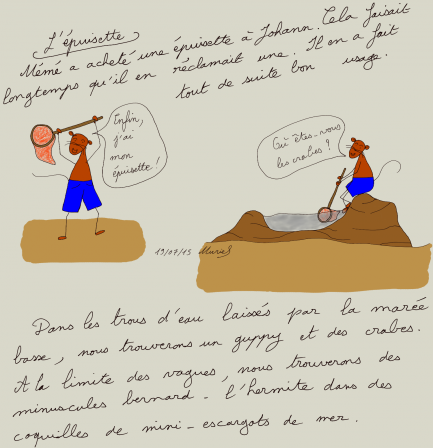 L'épuisette
Mémé a acheté une épuisette à Johann. Cela faisait
longtemps qu'il en réclamait une. Il en a fait
tout de suite bon usage.
Enfin,
j'ai
mon
épuisette !
Où êtes-vous
les crabes ?
19/07/15 Muriel
Dans les trous d'eau laissés par la marée
basse, nous trouverons un guppy et des crabes.
A la limite des vagues, nous trouverons des
minuscules bernard-l'hermite dans des
coquilles de mini-escargots de mer.